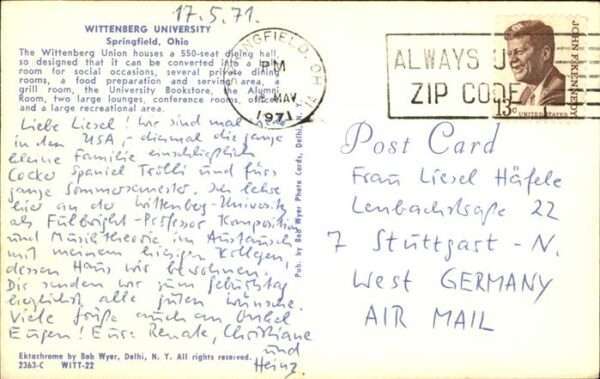 17.5.71.
WITTENBERG UNIVERSITY
Springfield, Ohio
The Wittenberg Union houses a 550-seat dining hall,
so designed that it can be converted into a
room for social occasions, several private dining
rooms, a food preparation and serving area, a
grill room, the University Bookstore, the Alumni
Room, two large lounges, conference rooms, offices
and a large recreational area.
Liebe Liesel! Wir sind mal
in den USA, diesmal die ganze
kleine Familie einschließlich
Cocker Spaniel Trolli und fürs
ganze Sommersemester. Ich lehre
hier an der Wittenberg-University
als Fulbright-Professor Komposition
und Musiktheorie im Austausch
mit meinem hiesigen Kollegen,
dessen Haus wir bewohnen.
Dir senden wir zum Geburtstag
herzlichst alle guten Wünsche.
Viele Grüße auch an Onkel
Eugen! Eure Renate, Christiane
und
Heinz.
Ektachrome by Bob Wyer, Delhi, N. Y. All rights reserved.
2363-C WITT-22
Pub. by Bob Wyer Photo Cards, Delhi, N.
SPRINGFIELD, OH
PM
MAY
1971
ALWAYS U
ZIP CODE
JOHN F. KENNEDY
13c UNITED STATES
Post Card
Frau Liesel Häfele
Lenbachstraße 22
7 Stuttgart-N.
West GERMANY
AIR MAIL